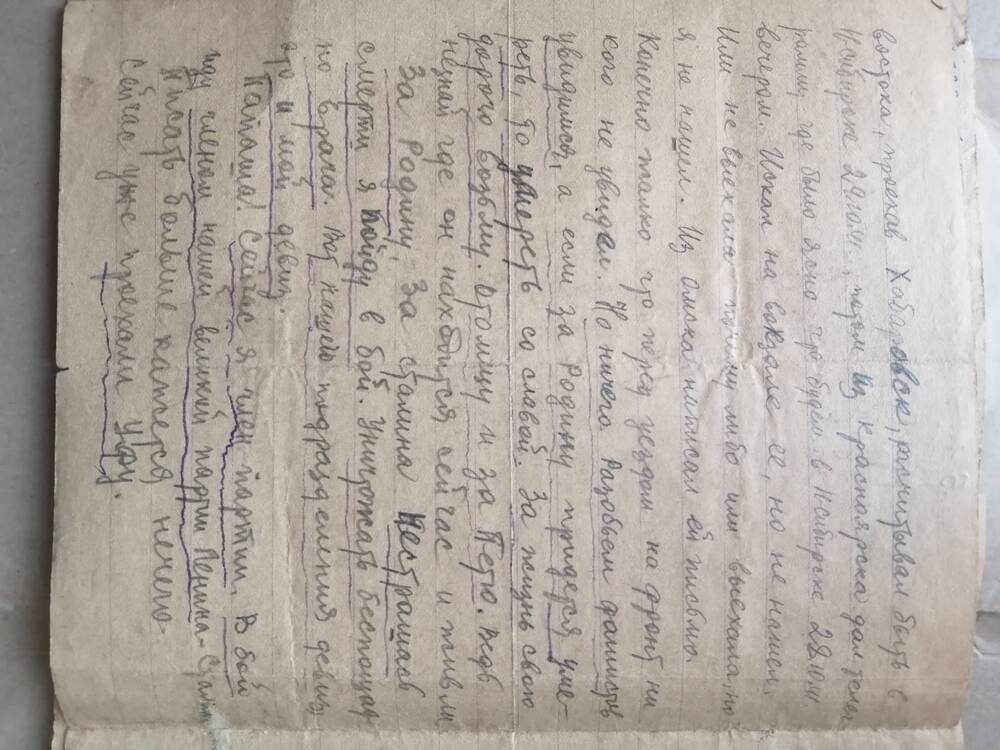 востока, проехав Хабаровск, расчитывал быть в
Н-Сибирске 29.VII., потом из Красноярска дал телег
рамму, где было ясно что будем в Н-Сибирске 28.VII
вечером. Искал на вокзале ее, но не нашел.
Или не выехала почему либо или выехала, но
я не нашел. Из Омска написал ей письмо.
Конечно жалко что перед уездом на фронт ни
кого не увидел. Но ничего. Разобьем фашистов
увидимся, а если за Родину придется уме-
реть, то умереть со славой. За жизнь свою
дорого возьму. Отомщу и за Петю. Ведь
незнай где он находится сейчас и жив ли
За Родину, За сталина нестрашась
смерти я пойду в бой. Уничтожать беспощад-
но врага. Вот нашего подразделения девиз,
это и мой девиз.
Папаша! Сейчас я член партии. В бой
иду членом нашей великой партии Ленина-Сталина
Писать больше кажется нечего
Сейчас уже проехали Уфу.